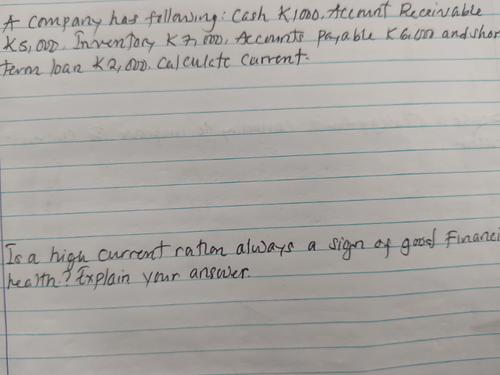 A company has following: Cash K1000, Account Receivable
K5,000, Inventory K7,000, Accounts payable K6,000 and shor
term loan K2,000. Calculate Current.
Is a high current ration always a sign of good Financi
health? Explain your answer.